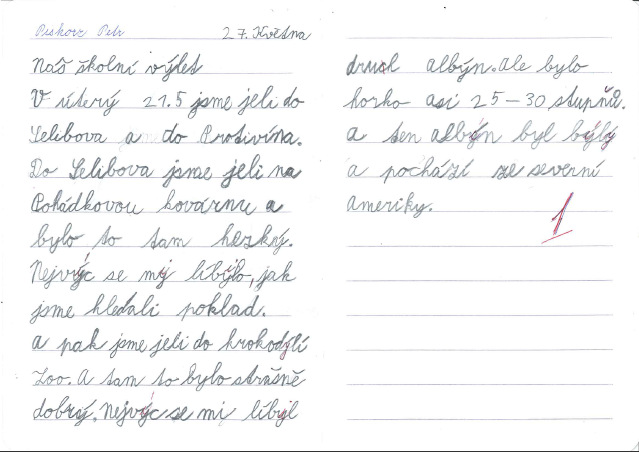 Piskoř Petr 27. Května
Náš školní výlet
V úterý 21.5 jsme jeli do
Selibova a do Protivína.
Do Selibova jsme jeli na
Pohádkovou kovárnu a
bylo to tam hezký.
Nejvýc se mý líbýlo, jak
jsme hledali poklad.
a pak jsme jeli do krokodýlí
Zoo. A tam to bylo strašně
dobrý. Nejvýc se mi líbyl
druch albýn. Ale bylo
horko asi 25-30 stupňů.
a ten albýn byl býlý
a pochází ze severní
ameriky.
1